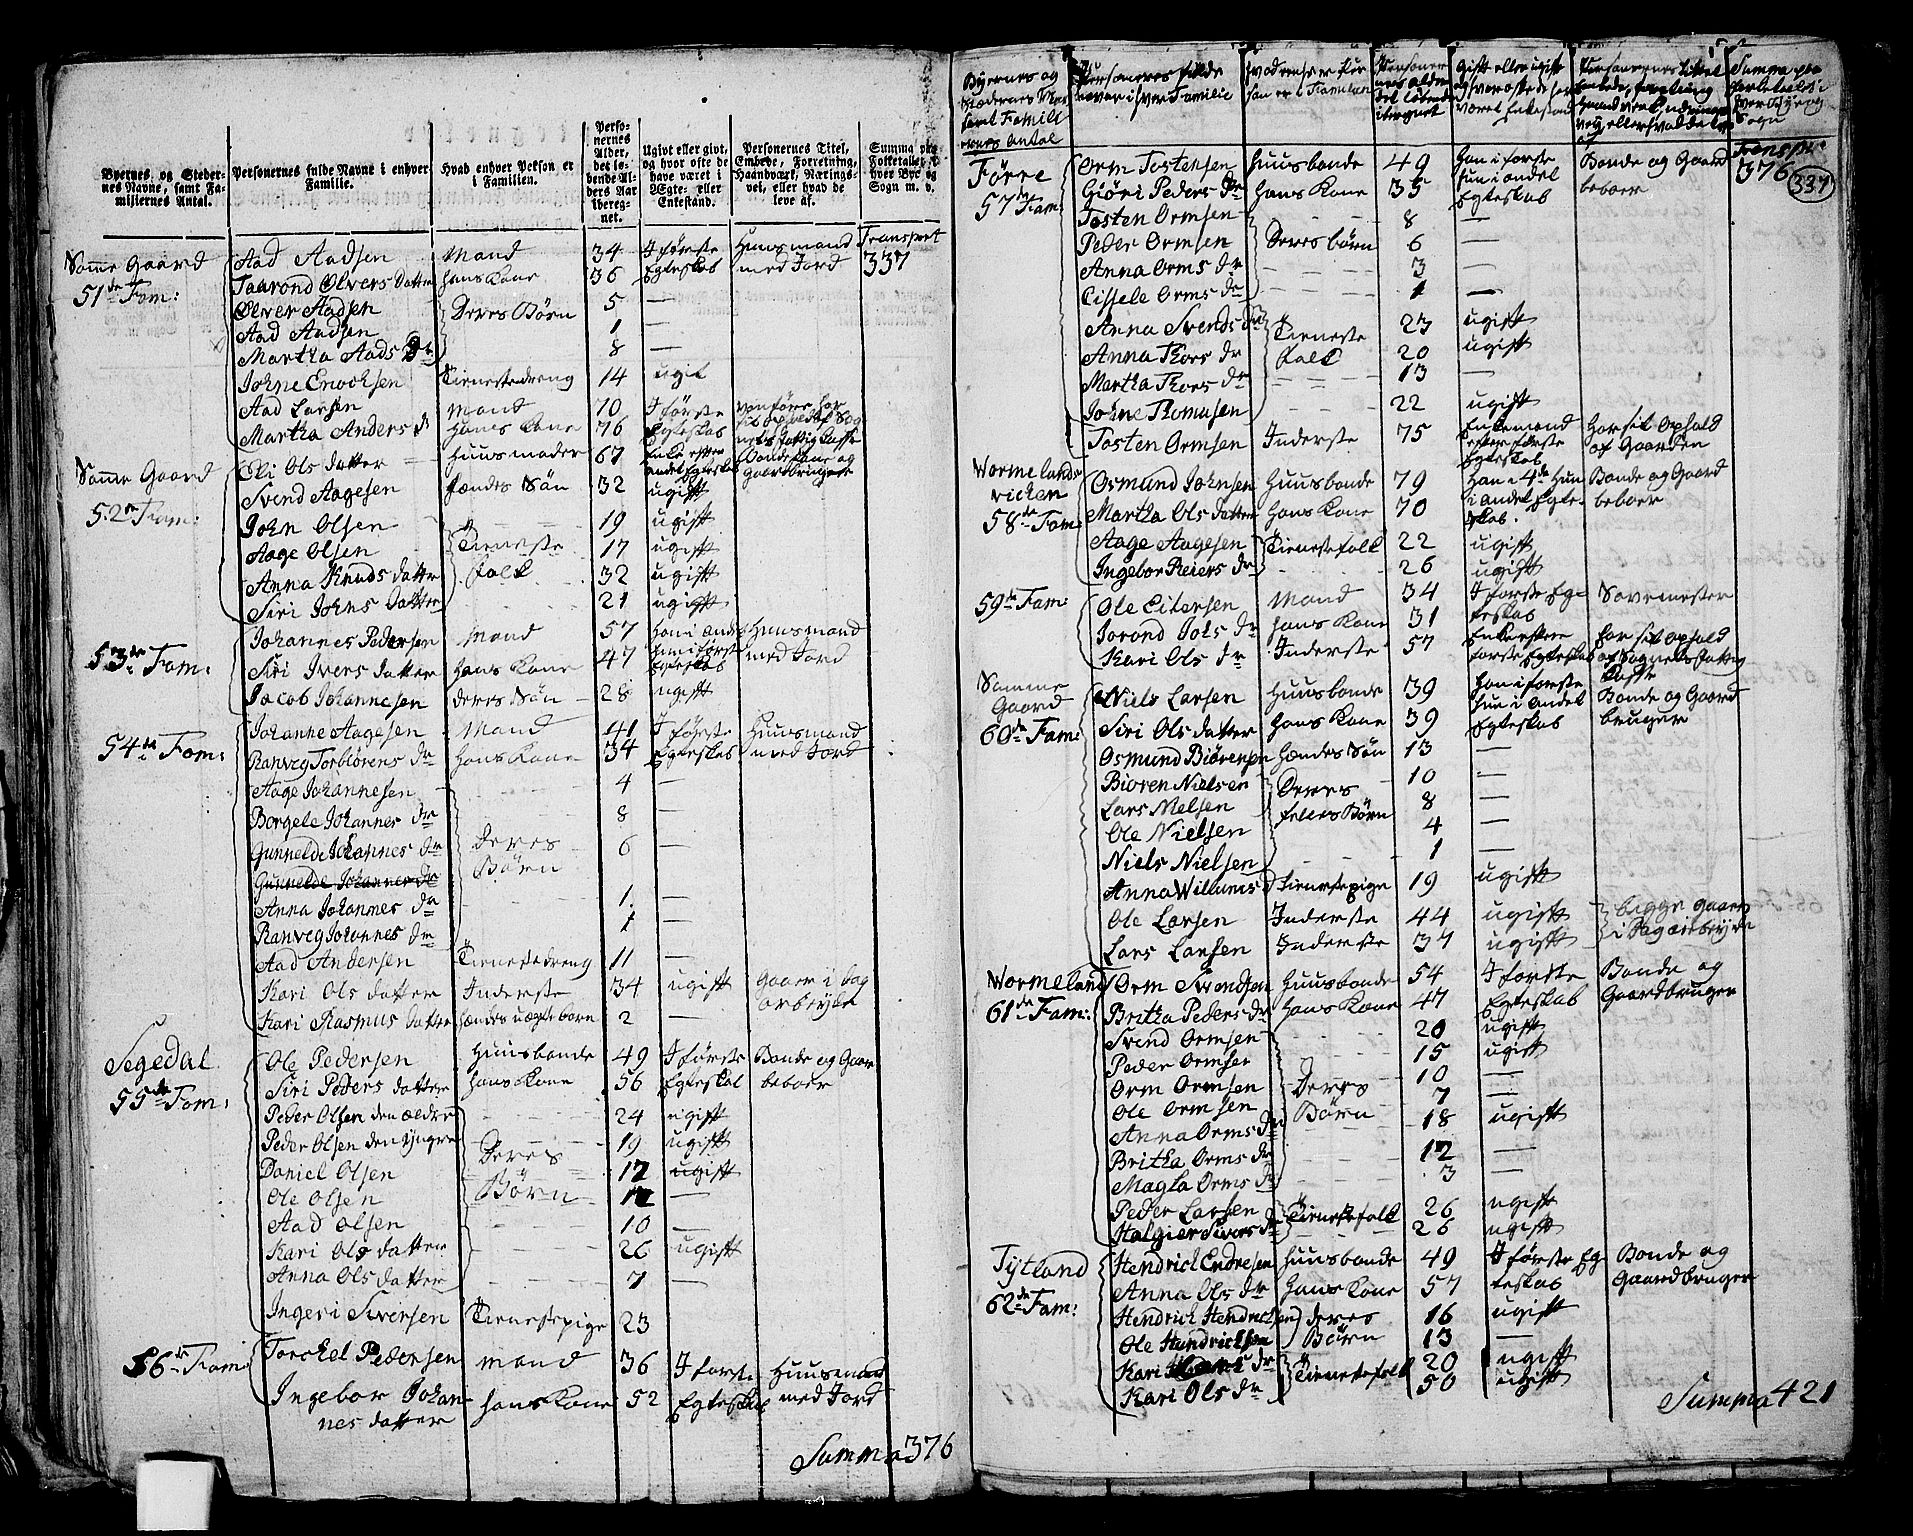 Byernes og Steder-
nes Navne, samt Fa-
miliernes Antal.
Personernes fulde Navne i enhver
Familie.
Hvad enhver Person er
i Familien.
Perso-
nernes
Alder,
det lø-
bende Al-
ders Aar
ibereg-
net.
Ugivt eller givt,
og hvor ofte de
have været i
Egte- eller
Enkestand.
Personernes Titel,
Embede, Forretning,
Haandværk, Nærings-
vei, eller hvad de
leve af.
Summa paa
Folketallet i
hver Bye og
Sogn
Samme Gaard Aad Aadsen Mand 34 I første Huusmand Transport
51de Fam: Taarond Olvers Datter hans Kone 36 Egteskab med Jord 337
Olver Aadsen Deres Børn 5 —
Aad Aadsen 1 —
Martha Aads Dr 8 —
Johne Enochsen Tienestedreng 14 ugit
Aad Larsen Mand 70 I første
Martha Anders d hans Kone 76 Egteskab
Samme Gaard Eli Ols datter Huusmoder 67 Enke efter Bondekone og
andet Egteskab Gaardbruger
Svend Aagesen hendes Søn 32 ugift
52de Fam: John Olsen 19 ugift
Aage Olsen Tieneste 17 ugift
Anna Knuds datter folk 32 ugift
Siri Johns datter 21 ugift
53de Fam: Johannes Pedersen Mand 57 Han i andet Huusmand
Siri Ivers datter hans Kone 47 hun i første Egteskab med Jord
Jacob Johannesen deres Søn 28 ugift
54de Fam: Johanne Aagesen Mand 41 I første Huusmand
Ranveg Torbiørens dr hans Kone 34 Egteskab med Jord
Aage Johannesen 4 —
Borgele Johannes dr 8 —
Gunnelde Johannes dr Deres 6 —
Gunnelde Johannes dr Børn
Anna Johannes dr 1 —
Ranveg Johannes dr 1 —
Aad Andersen Tienestedreng 11 —
Kari Ols datter Inderste 34 ugift Gaaer i dag
arbeyde
Kari Rasmus datter hendes uægte barn 2 —
Segedal Ole Pedersen Huusbonde 49 I første Bonde og Gaar
55de Fam: Siri Peders datter hans Kone 56 Egteskab beboer
Peder Olsen den ældre 24 ugift
Peder Olsen den yngre Deres 19 ugift
Daniel Olsen Børn 17 ugift
Ole Olsen 12 —
Aad Olsen 10 —
Kari Ols datter 26 ugift
Anna Ols datter 7 —
Ingeri Siversen Tienestepige 23
56de Fam: Torckel Pedersen mand 36 I første Huusmand
Ingebor Johan- hans Kone 52 Egteskab med Jord
nes datter
Summa 376
Byernes og
Stedernes Navne
samt Famili
ernes Antal
Personernes fulde
Navne i hver Familie
hvad enhver Per
son er i Familien
Personer
nes alder
det løbende
iberegnet
Gift eller ugift
og hvor ofte de har
været i Enkestand
Personernes titel
Embede, forretning
Haandværk, Nærings
vey eller hvad de leve
af
Summa paa
Folketallet i
hver Bye og
Sogn
Førre Orm Tostensen Huusbonde 49 Han i første Bonde og Gaard Transpt:
57de Fam: Giøri Peders dr hans Kone 35 hun i andet beboer 376 337
Egteskab
Tosten Ormsen 8 —
Peder Ormsen Deres børn 6 —
Anna Orms dr 3 —
Cissele Orms dr 1 —
Anna Svends dr Tieneste 23 ugift
Anna Thors dr Folk 20 ugift
Martha Thors dr 13 —
Johne Thomasen 22 ugift
Tosten Ormsen Inderste 75 Enkemand Har sit Ophold
efter første af Gaarden
Egteskab
Wormelands
vicken Osmund Johnsen Huusbonde 79 Han i 4de Hun Bonde og Gaard
58de Fam: Martha Ols datter hans Kone 70 i andet Egte- beboer
skab.
Aage Aagesen Tienestefolk 22 ugift
Ingebor Reiers dr 26 ugift
59de Fam: Ole Eitersen Mand 34 I første Eg- Savemester
Jorond Jols dr hans Kone 31 teskab
Kari Ols dr Inderste 57 Enke efter har sit Ophold
første Egteskab af Sognets fattig
Kasse
Samme
Gaard Niels Larsen Huusbonde 39 Han i første Bonde og Gaard
60de Fam: Siri Ols datter hans Kone 39 hun i andet bruger
Egteskab
Osmund Biørensen Hendes Søn 13 —
Bioren Nielsen Deres 10 —
Lars Nielsen felles Børn 8 —
Ole Nielsen 4 —
Niels Nielsen 1 —
Anna Willums d Tienestepige 19 ugift
Ole Larsen Inderste 44 ugift begge gaaer
Lars Larsen Inderste 37 ugift i Dagarbeyde
Wormeland Orm Svendsen Huusbonde 54 I første Bonde og
61de Fam: Britha Peders dr hans Kone 47 Egteskab Gaardbruger
Svend Ormsen 20 ugift
Peder Ormsen 15 ugift
Orm Ormsen Deres 10 —
Ole Ormsen Børn 7 —
Anna Orms dr 18 ugift
Britha Orms dr 12 —
Magla Orms dr 3 —
Peder Larsen Tienestefolk 26 ugift
Halgier Sivers dr 26 ugift
Tytland Hendrick Endresen Huusbonde 49 I første Eg Bonde og
62de Fam: Anna Ols dr hans Kone 57 teskab Gaardbruger
Hendrich Hendrichsen deres 16 ugift
Ole Hendrichsen Børn 13 —
Kari dr Tienestefolk 20 ugift
Kari Ols dr 50 ugift
Summa 421